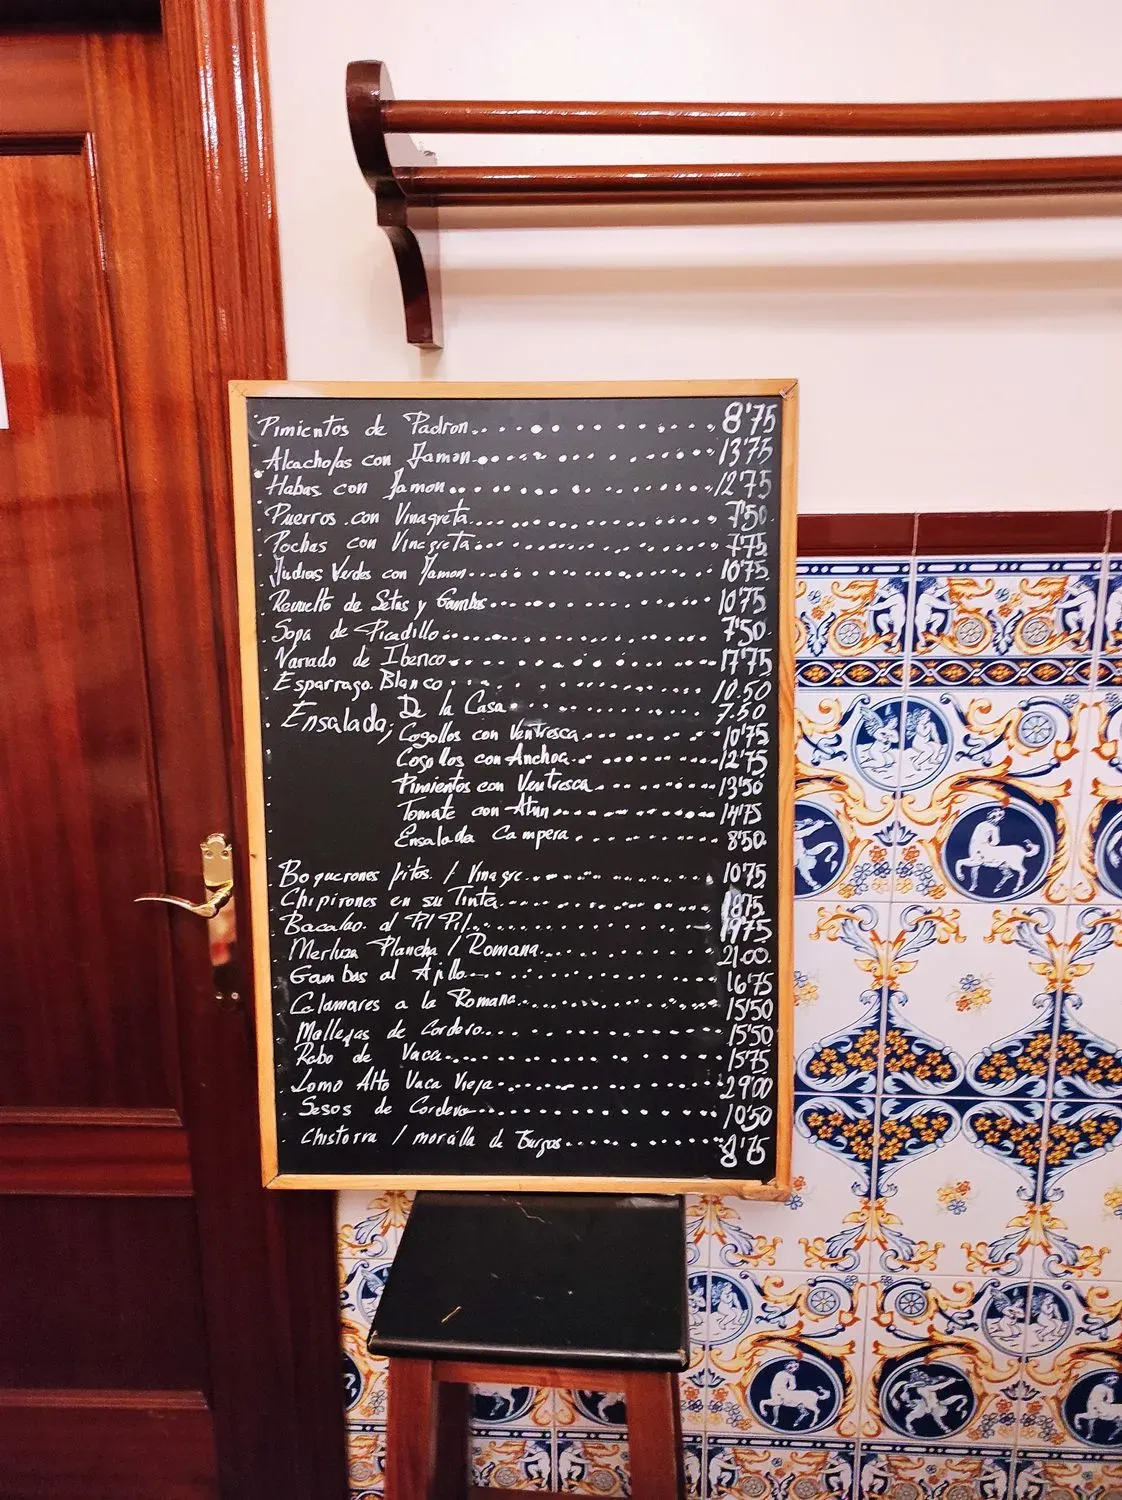 Pimientos de Padron 8'75
Alcachofas con Jamon 13'75
Habas con Jamon 12'75
Puerros con Vinagreta 7'50
Pochas con Vinagreta 7'75
Judias Verdes con Jamon 10'75
Revuelto de Setas y Gambas 10'75
Sopa de Picadillo 7'50
Variado de Iberico 17'75
Esparrago Blanco 10.50
Ensalada; De la Casa 7.50
Cogollos con Ventresca 10'75
Cogollos con Anchoa 12'75
Pimientos con Ventresca 13'50
Tomate con Atun 14'75
Ensalada Campera 8'50
Boquerones fritos / Vinagre 10'75
Chipirones en su Tinta 18'75
Bacalao al Pil Pil 19'75
Merluza Plancha / Romana 21.00
Gambas al Ajillo 16'75
Calamares a la Romana 15'50
Mollejas de Cordero 15'50
Rabo de Vaca 15'75
Lomo Alto Vaca Vieja 29'00
Sesos de Cordero 10'50
Chistorra / morcilla de Burgos 8'75